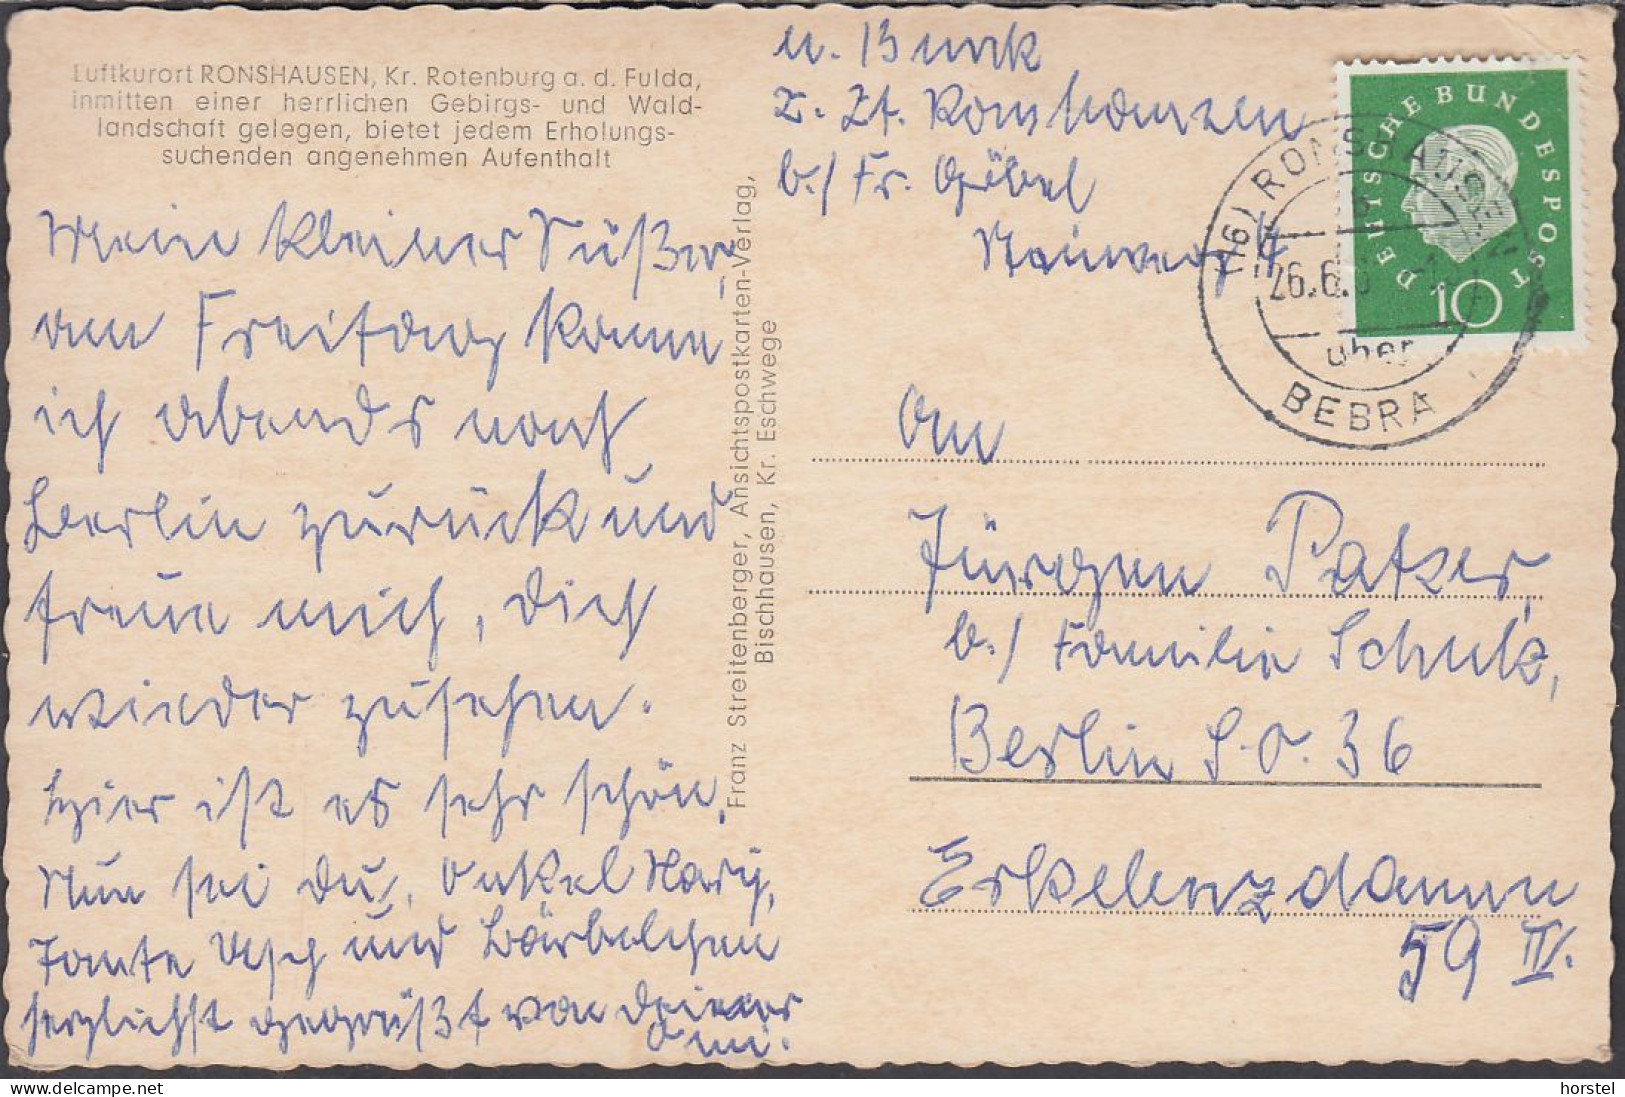 Luftkurort RONSHAUSEN, Kr. Rotenburg a. d. Fulda,
inmitten einer herrlichen Gebirgs- und Wald-
landschaft gelegen, bietet jedem Erholungs-
suchenden angenehmen Aufenthalt
Mein kleiner Süßer,
am Freitag komme
ich abends nach
Berlin zurück und
freue mich, dich
wieder zusehen.
Hier ist es sehr schön.
Nun sei du, Onkel Harry,
Tante Usch und Bärbelchen
herzlichst gegrüßt von deiner
Omi.
Franz Streitenberger, Ansichtspostkarten-Verlag,
Bischhausen, Kr. Eschwege
z. Zt. Ronshausen
b./ Fr. Göbel
DEUTSCHE BUNDESPOST
10
(16) RONSHAUSEN
26.6.
über
BEBRA
An
Jürgen Patzer,
b./ Familie Schulz,
Berlin S.O. 36
Erkelenzdamm
59 IV.
horstel